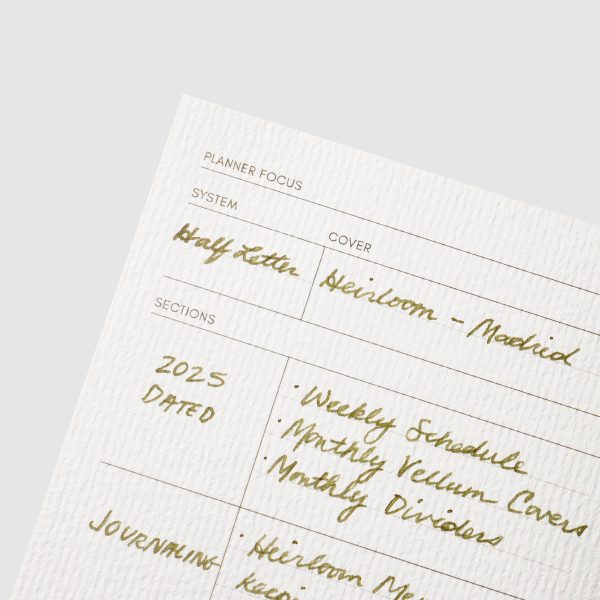 PLANNER FOCUS
SYSTEM
COVER
Half Letter
Heirloom - Madrid
SECTIONS
2025
DATED
· Weekly Schedule
· Monthly Vellum Covers
· Monthly Dividers
JOURNALING
· Heirloom